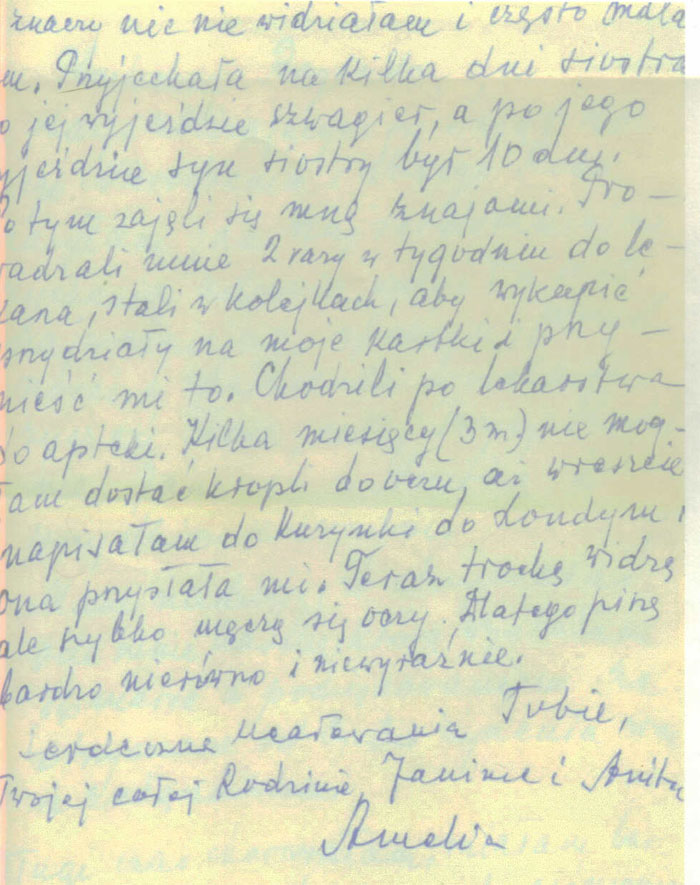 znaczy nic nie widziałam i często mdla
m. Przyjechała na kilka dni siostra
o jej wyjeździe szwagier, a po jego
yjeździe syn siostry był 10 dni.
Po tym zajęli się mną znajomi. Pro-
wadzali mnie 2 razy w tygodniu do le-
karza, stali w kolejkach, aby wykupić
przydziały na moje kartki i przy-
nieść mi to. Chodzili po lekarstwa
do apteki. Kilka miesięcy (3 m.) nie mog-
łam dostać kropli do oczu, aż wreszcie
napisałam do kuzynki do Londynu i
ona przysłała mi. Teraz trochę widzę
ale szybko męczą się oczy. Dlatego piszę
bardzo nierówno i niewyraźnie.
Serdeczne ucałowania Tobie,
Twojej całej Rodzinie, Janinie i Anitce
Amelia